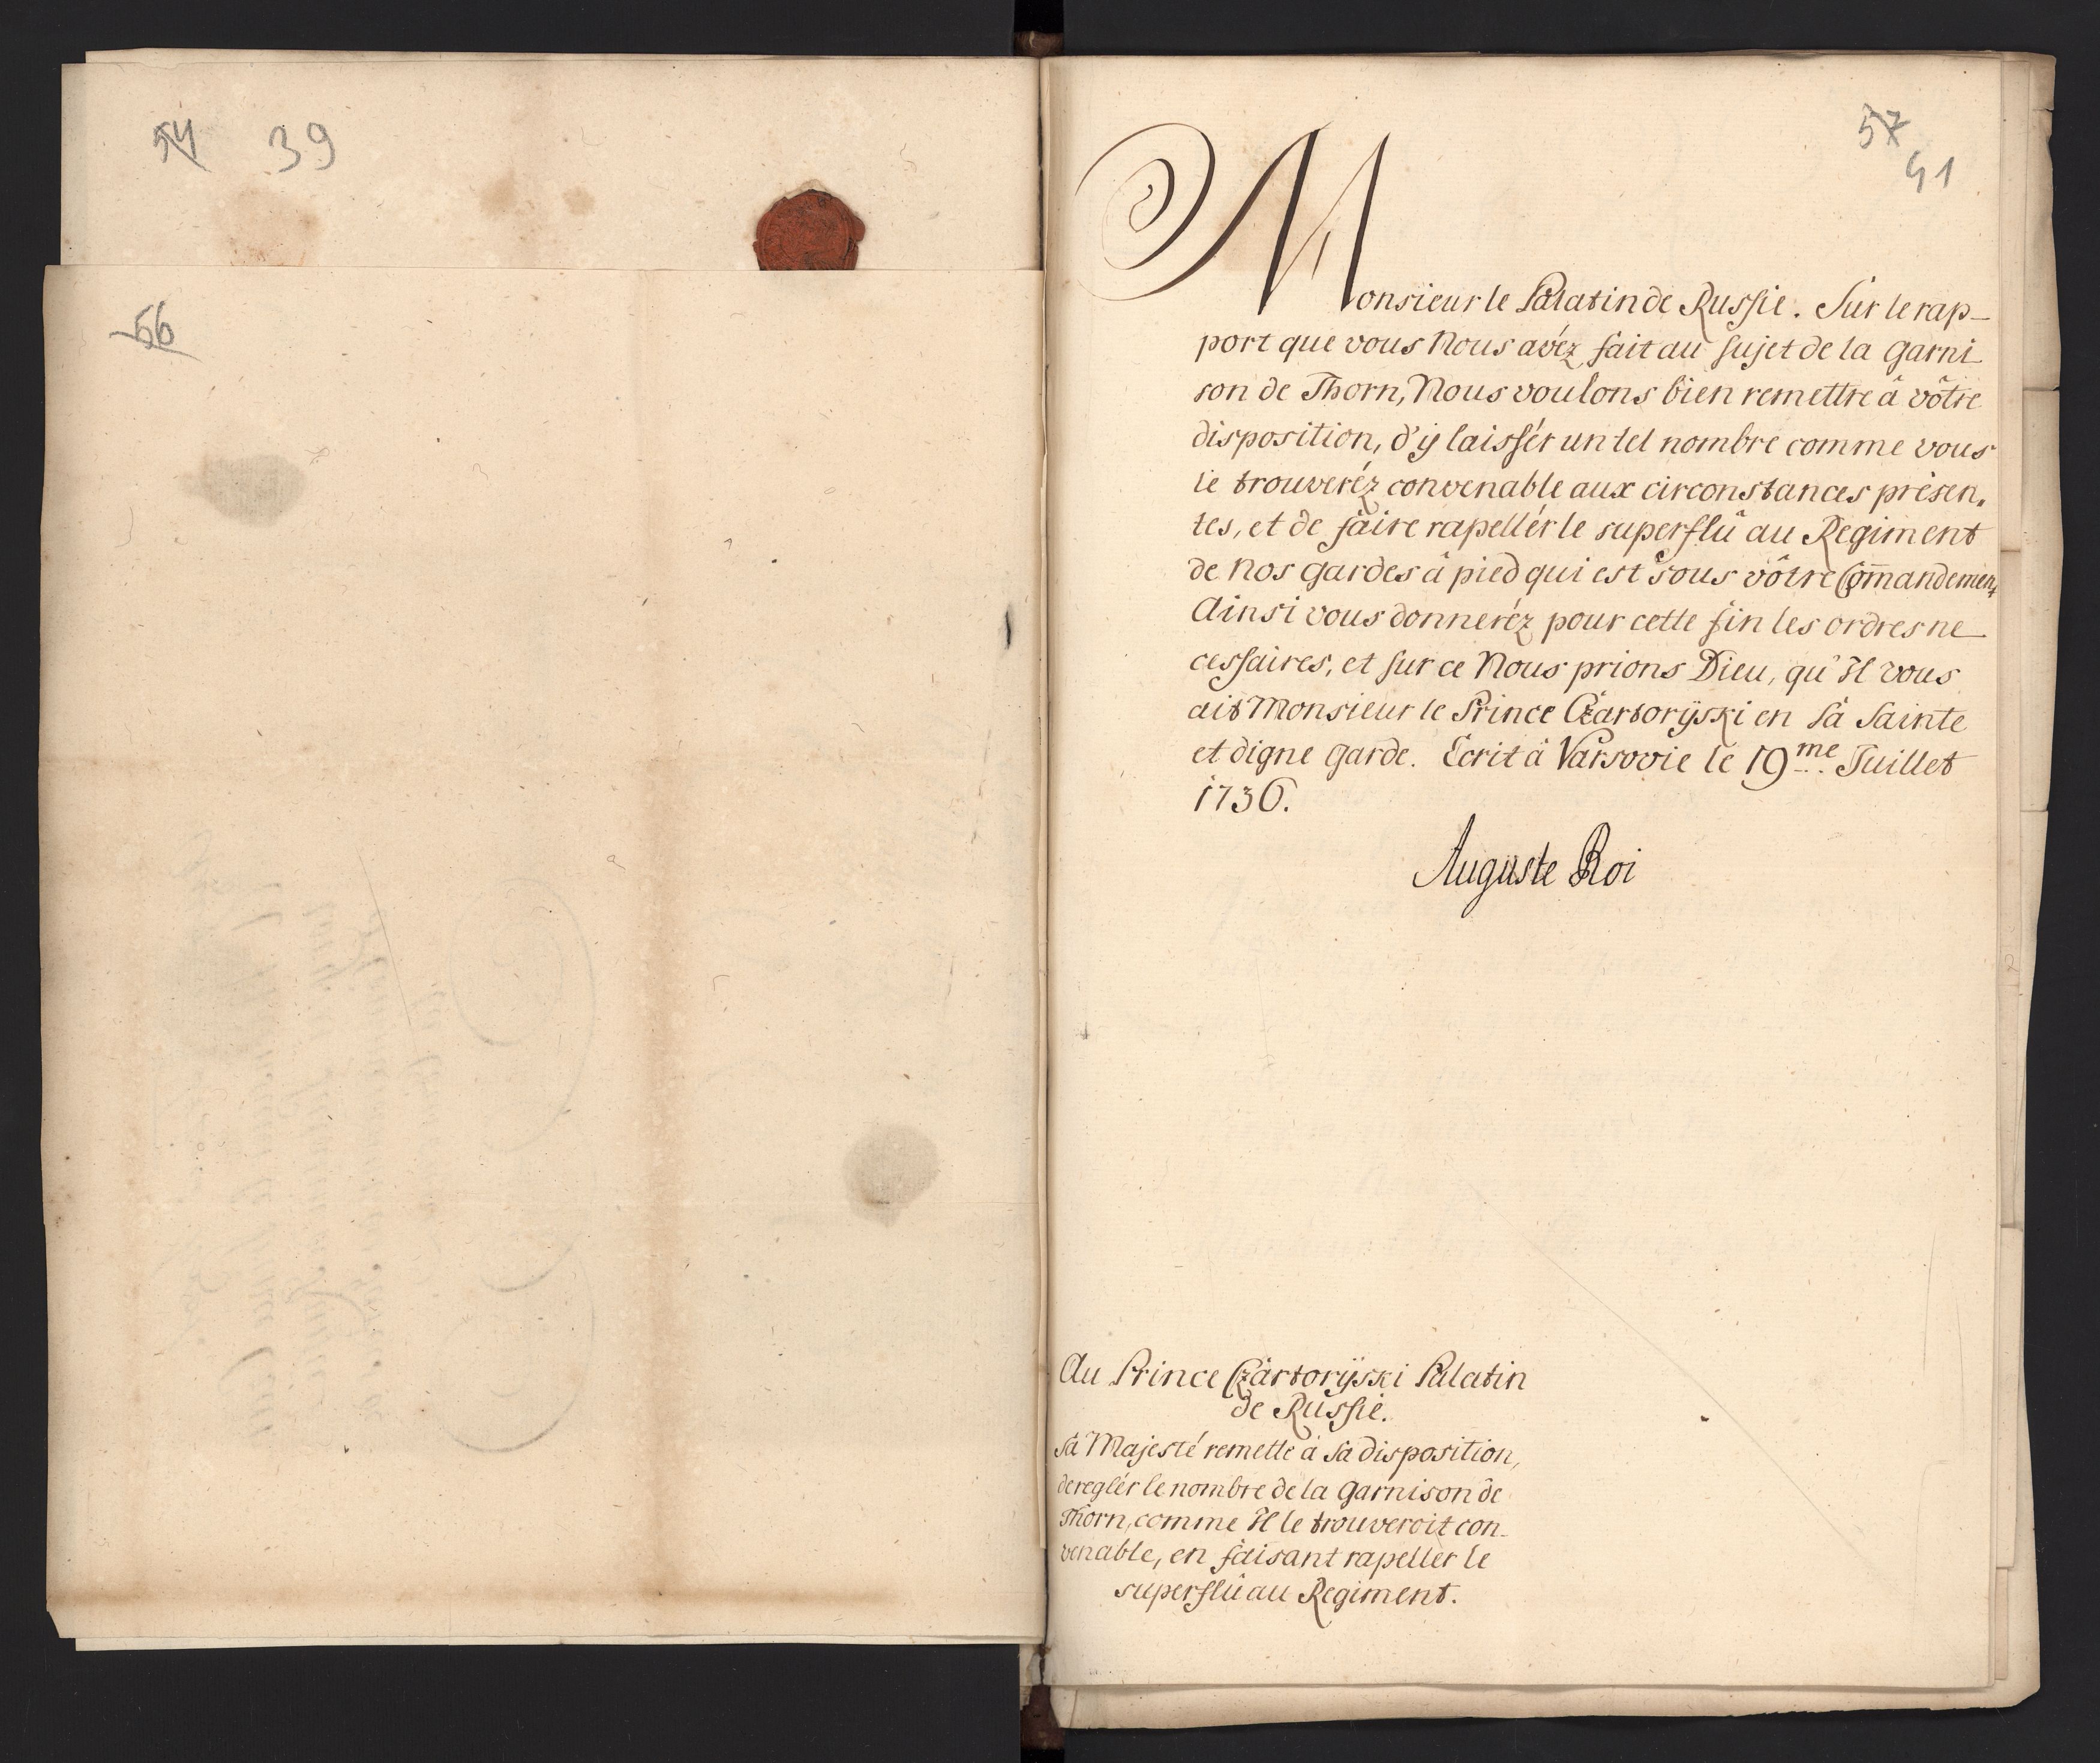 54 39
56
57
41
Monsieur le Palatin de Russie. Sur le rap-
port que vous Nous avéz fait au sujet de la garni
son de Thorn, Nous voulons bien remettre à vôtre
disposition, d'ÿ laissér un tel nombre comme vous
le trouveréz convenable aux circonstances présen„
tes, et de faire rapellér le superflû au Regiment
de Nos gardes à pied qui est sous vôtre Com̄andement
Ainsi vous donneréz pour cette fin les ordres ne
cessaires, et sur ce Nous prions Dieu, qu'Il vous
ait Monsieur le Prince Czartorÿski en Sa Sainte
et digne garde. Ecrit à Varsovie le 19me Juillet
1736.
Auguste Roi
Au Prince Czartorÿski Palatin
de Russie.
Sa Majesté remette à Sa disposition,
de reglér le nombre de la garnison de
Thorn, comme Il le trouveroit con-
venable, en faisant rapellér le
superflû au Regiment.